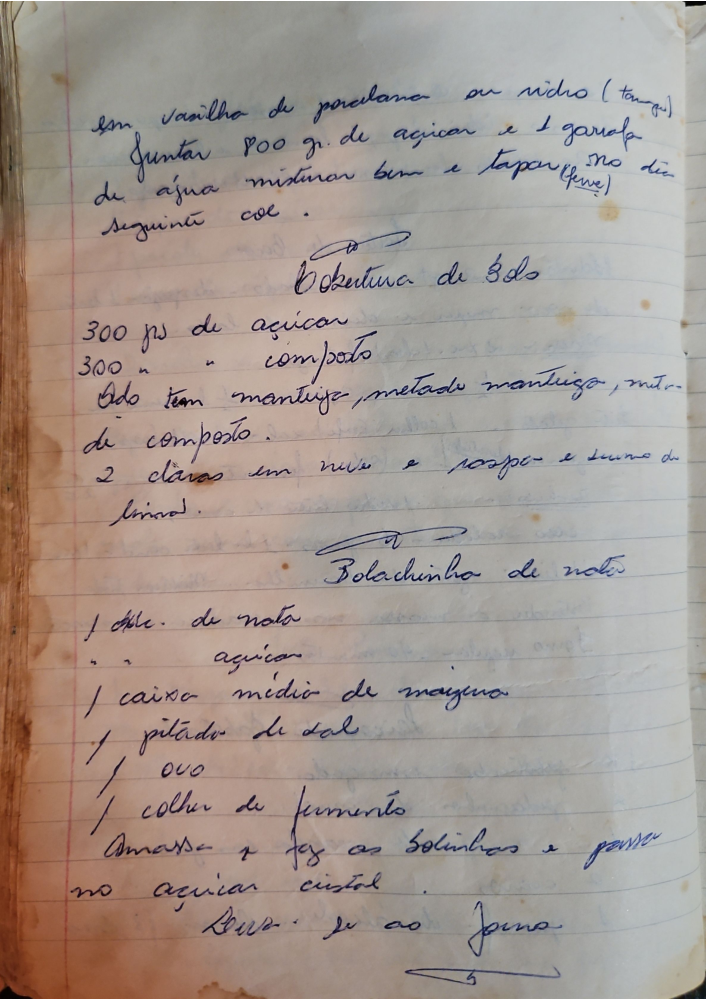 em vasilha de porcelana ou vidro (
Juntar 800 gr. de açúcar e 1 garrafa
de água misturar bem e tapar, no dia
(ferve)
seguinte coe.
Cobertura de Bolo
300 grs de açúcar
300 " " composto
tem manteiga, metade manteiga, meta-
de composto.
2 claras em neve e raspa e sumo de
limão.
Bolachinha de nata
1 de nata
" " açúcar
1 caixa média de maizena
1 pitada de sal
1 ovo
1 colher de fermento
Amassa e faz as bolinhas e passa
no açúcar cristal.
Leva-se ao forno